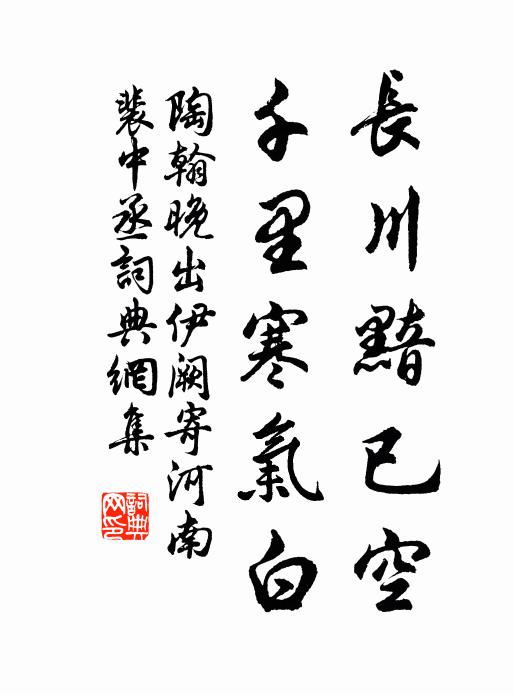 長川黯已空
千里寒氣白
陶翰晚出伊闕寄河南
裴中丞詞典網集
詞典網印